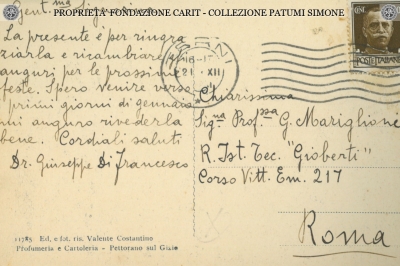 PROPRIETA' FONDAZIONE CARIT - COLLEZIONE PATUMI SIMONE
Gent.ma Sig.na
La presente è per ringra
ziarla e ricambiare
auguri per le prossime
feste. Spero venire verso
i primi giorni di gennaio
mi auguro rivederla
bene. Cordiali saluti
Dr. Giuseppe Di Francesco
21 XII
POSTE ITALIANE
Chiarissima
Sig.na Prof.ssa G. Mariglioni
R. Ist. Tec. "Gioberti"
Corso Vitt. Em. 217
Roma
11785 Ed. e fot. ris. Valente Costantino
Profumeria e Cartoleria - Pettorano sul Gizio